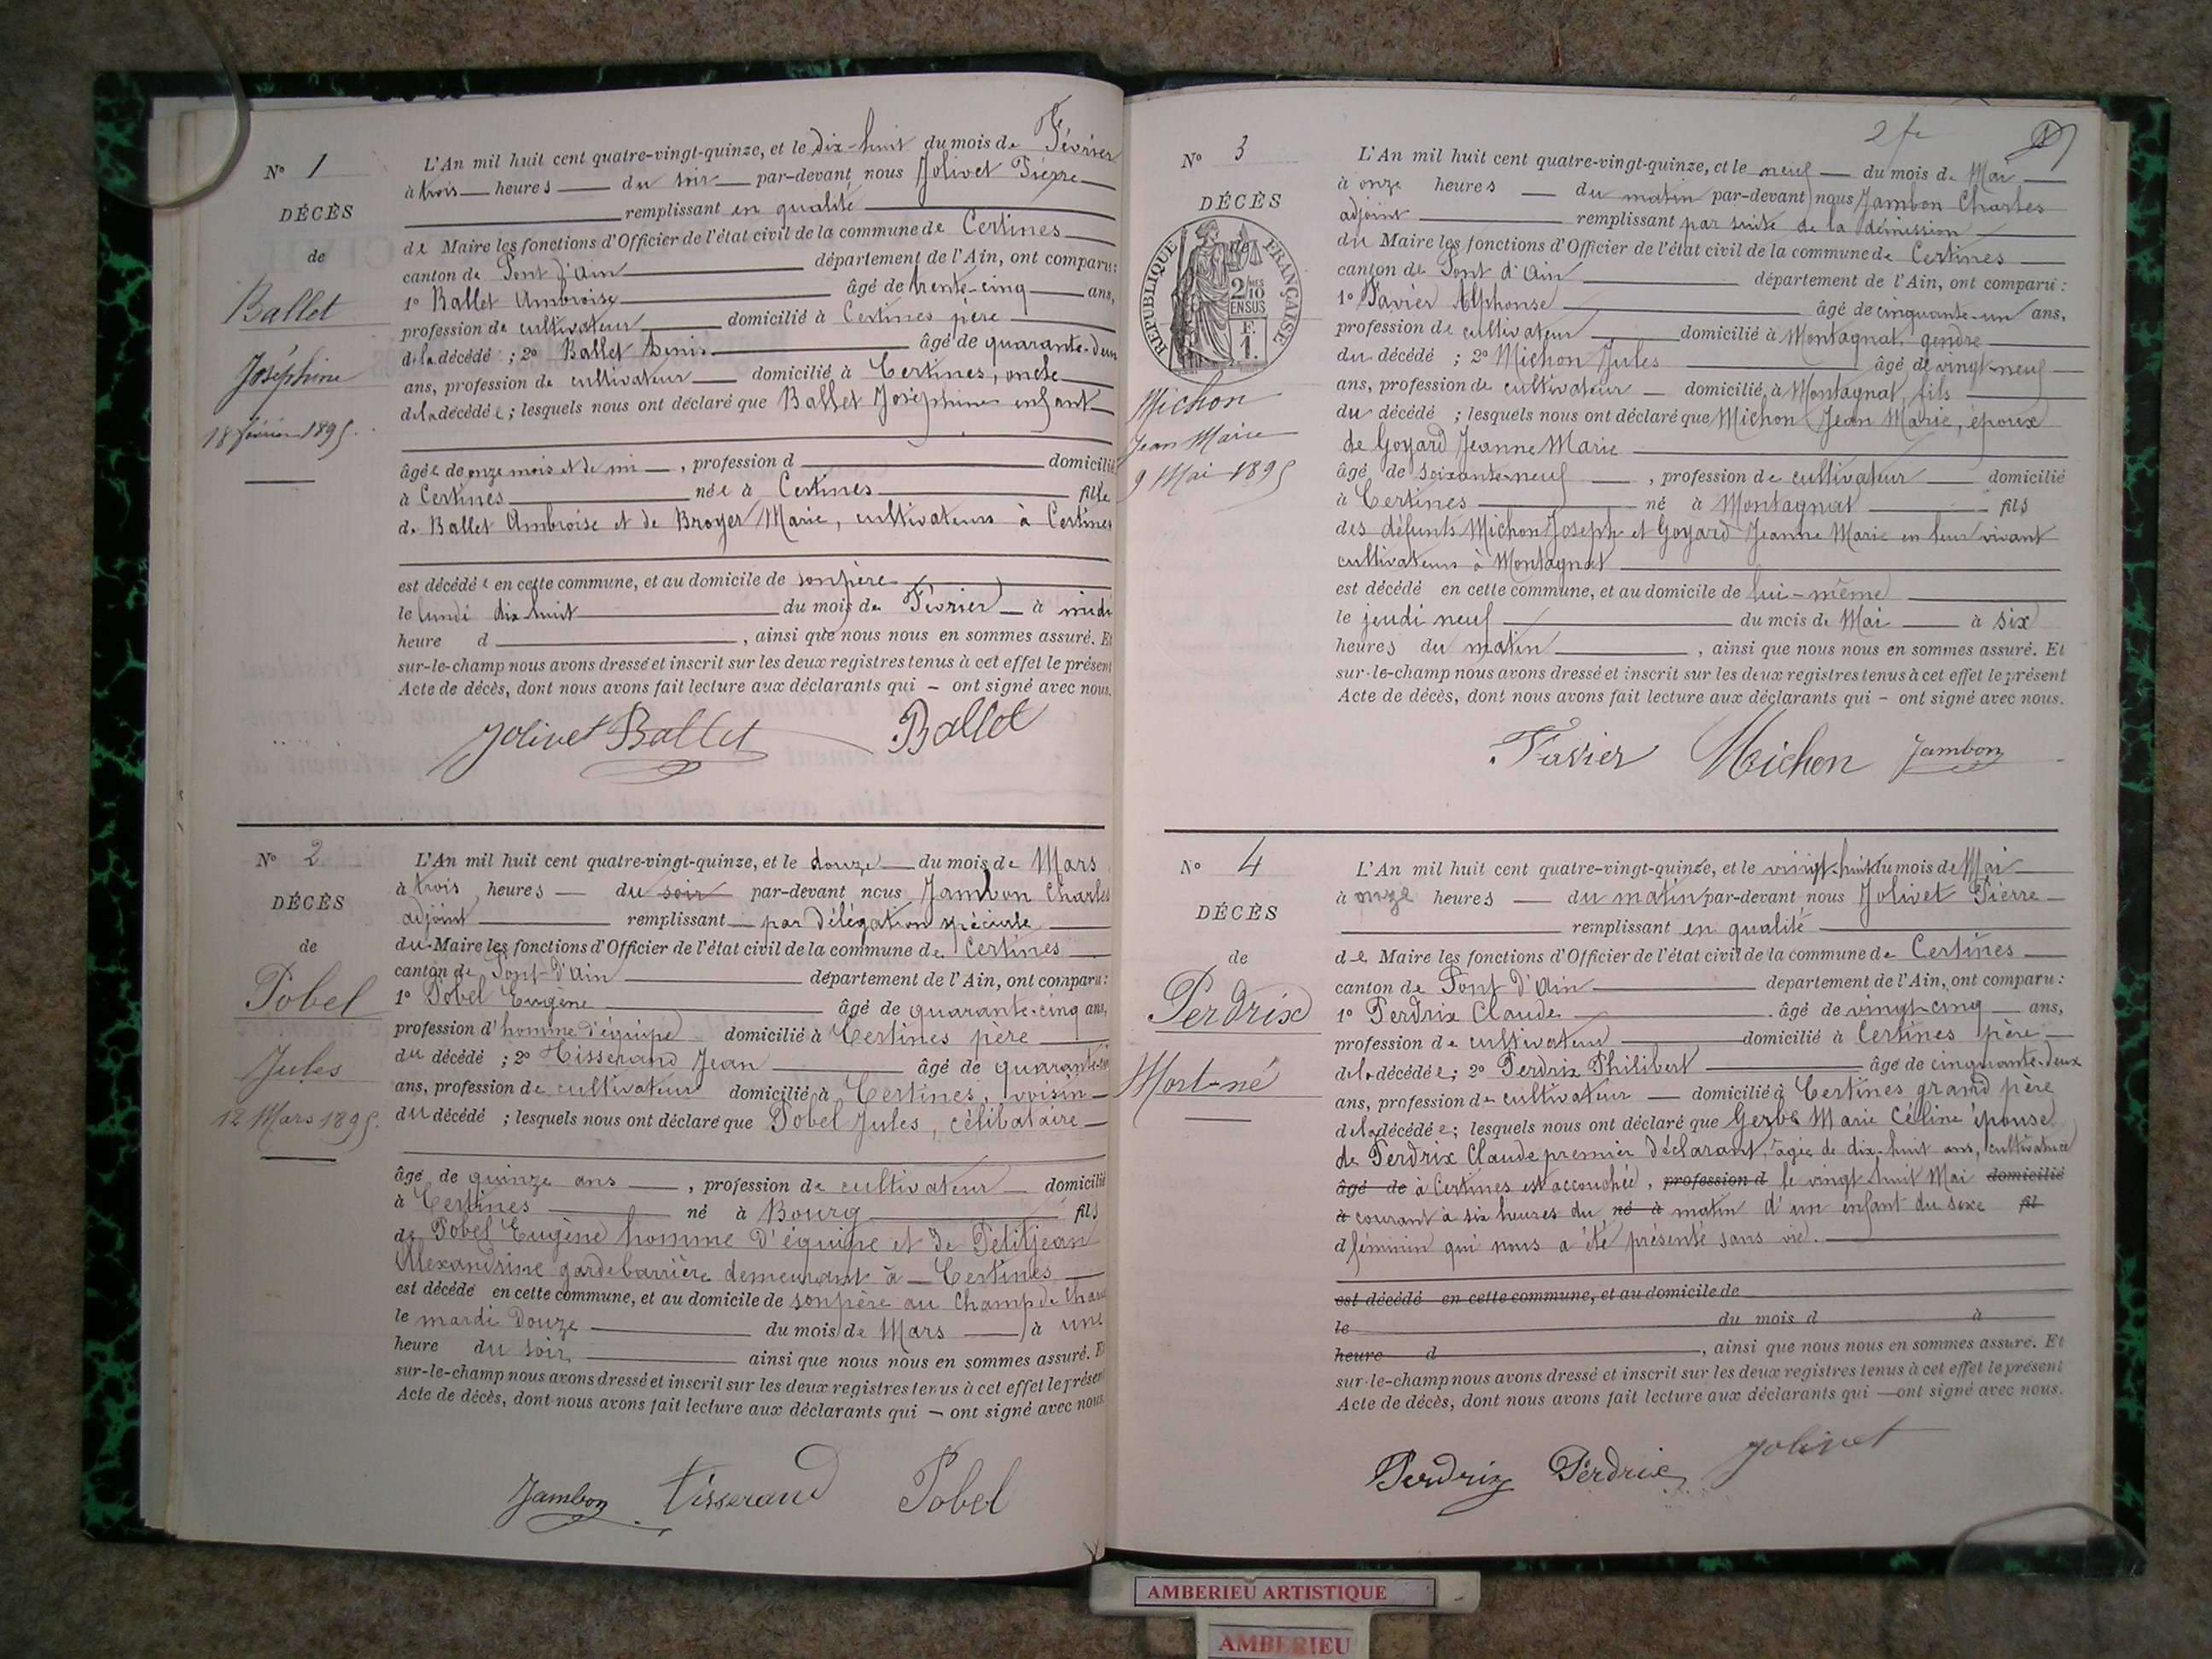 N° 1
DÉCÈS
de
Ballet
Joséphine
18 février 1895.
L'An mil huit cent quatre-vingt-quinze, et le dix-huit du mois de Février
à trois heures du soir par-devant nous Jolivet Pierre
remplissant en qualité
de Maire les fonctions d'Officier de l'état civil de la commune de Certines
canton de Pont d'Ain département de l'Ain, ont comparu:
1° Ballet Ambroise âgé de trente-cinq ans,
profession de cultivateur domicilié à Certines père
de la décédé ; 2° Ballet Denis âgé de quarante-deux
ans, profession de cultivateur domicilié à Certines, oncle
de la décédée ; lesquels nous ont déclaré que Ballet Joséphine enfant
âgée de onze mois et demi, profession d domicilié
à Certines née à Certines fille
de Ballet Ambroise et de Broyer Marie, cultivateurs à Certines
est décédée en cette commune, et au domicile de son père
le lundi dix huit du mois de Février à midi
heure d , ainsi que nous nous en sommes assuré. Et
sur-le-champ nous avons dressé et inscrit sur les deux registres tenus à cet effet le présent
Acte de décès, dont nous avons fait lecture aux déclarants qui - ont signé avec nous.
Jolivet Ballet Ballet
N° 2
DÉCÈS
de
Pobel
Jules
12 Mars 1895.
L'An mil huit cent quatre-vingt-quinze, et le douze du mois de Mars
à trois heures du soir par-devant nous Jambon Charles
adjoint remplissant par délégation spéciale
du Maire les fonctions d'Officier de l'état civil de la commune de Certines
canton de Pont-d'Ain département de l'Ain, ont comparu:
1° Pobel Eugène âgé de quarante-cinq ans,
profession d'homme d'équipe domicilié à Certines père
du décédé ; 2° Tisserand Jean âgé de
ans, profession de cultivateur domicilié à Certines, voisin
du décédé ; lesquels nous ont déclaré que Pobel Jules, célibataire
âgé de quinze ans, profession de cultivateur domicilié
à Certines né à Bourg fils
de Pobel Eugène homme d'équipe et de Petitjean
Alexandrine gardebarrière demeurant à Certines
est décédé en cette commune, et au domicile de son père au Champ de
le mardi douze du mois de Mars à une
heure du soir, ainsi que nous nous en sommes assuré. Et
sur-le-champ nous avons dressé et inscrit sur les deux registres tenus à cet effet le présent
Acte de décès, dont nous avons fait lecture aux déclarants qui - ont signé avec nous.
Jambon Tisserand Pobel
2 fe
N° 3
DÉCÈS
de
RÉPUBLIQUE FRANÇAISE.
2/10 MES
EN SUS
F.
1.
Michon
Jean Marie
9 Mai 1895
L'An mil huit cent quatre-vingt-quinze, et le neuf du mois de Mai
à onze heures du matin par-devant nous Jambon Charles
adjoint remplissant par suite de la démission
du Maire les fonctions d'Officier de l'état civil de la commune de Certines
canton de Pont d'Ain département de l'Ain, ont comparu :
1° Favier Alphonse âgé de cinquante-un ans,
profession de cultivateur domicilié à Montagnat, gendre
du décédé ; 2° Michon Jules âgé de vingt-neuf
ans, profession de cultivateur domicilié à Montagnat, fils
du décédé ; lesquels nous ont déclaré que Michon Jean Marie, époux
de Goyard Jeanne Marie
âgé de soixante-neuf, profession de cultivateur domicilié
à Certines né à Montagnat fils
des défunts Michon Joseph et Goyard Jeanne Marie en leur vivant
cultivateurs à Montagnat
est décédé en cette commune, et au domicile de lui-même
le jeudi neuf du mois de Mai à six
heures du matin, ainsi que nous nous en sommes assuré. Et
sur-le-champ nous avons dressé et inscrit sur les deux registres tenus à cet effet le présent
Acte de décès, dont nous avons fait lecture aux déclarants qui - ont signé avec nous.
Favier Michon Jambon
N° 4
DÉCÈS
de
Perdrix
Mort-né
L'An mil huit cent quatre-vingt-quinze, et le vingt-huit du mois de Mai
à onze heures du matin par-devant nous Jolivet Pierre
remplissant en qualité
de Maire les fonctions d'Officier de l'état civil de la commune de Certines
canton de Pont d'Ain département de l'Ain, ont comparu :
1° Perdrix Claude âgé de vingt-cinq ans,
profession de cultivateur domicilié à Certines père
de la décédée ; 2° Perdrix Philibert âgé de cinquante-deux
ans, profession de cultivateur domicilié à Certines grand père
de la décédée ; lesquels nous ont déclaré que Gerbe Marie Céline épouse
de Perdrix Claude premier déclarant, âgée de dix-huit ans, cultivatrice
âgé de à Certines est accouchée, profession d le vingt huit Mai domicilié
à courant à six heures du né à matin d'un enfant du sexe fil
d féminin qui nous a été présenté sans vie.
est décédé en cette commune, et au domicile de
le du mois d à
heure d , ainsi que nous nous en sommes assuré. Et
sur-le-champ nous avons dressé et inscrit sur les deux registres tenus à cet effet le présent
Acte de décès, dont nous avons fait lecture aux déclarants qui — ont signé avec nous.
Perdrix Perdrix Jolivet
AMBERIEU ARTISTIQUE
AMBERIEU